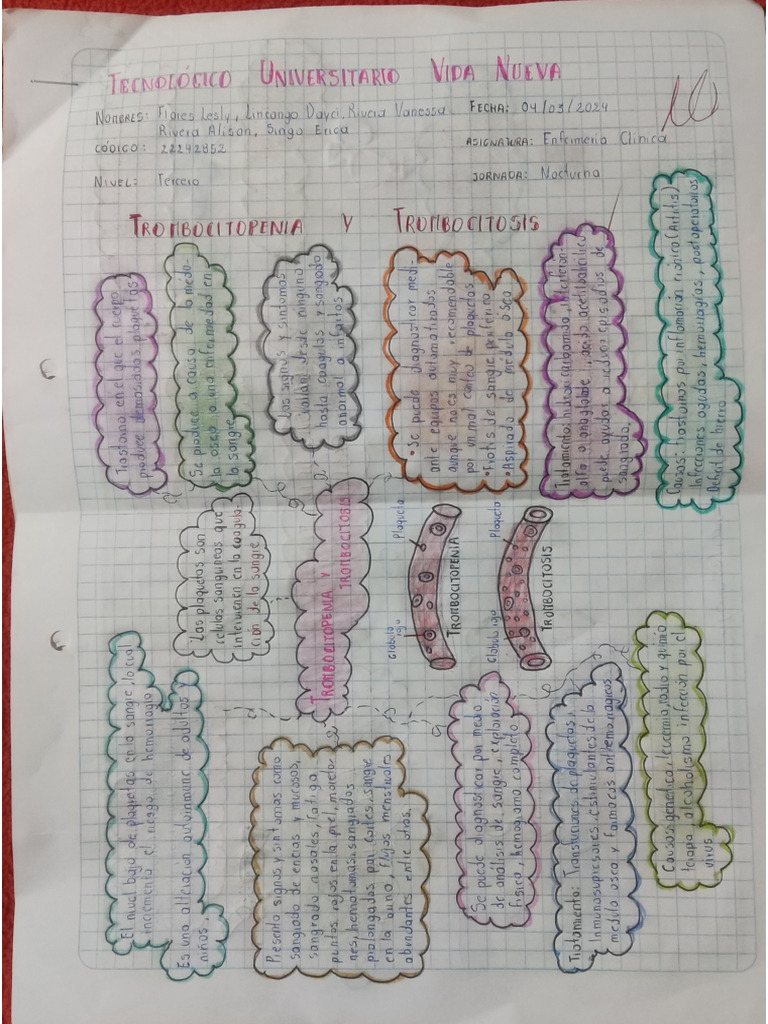 TECNOLÓGICO UNIVERSITARIO VIDA NUEVA
NOMBRES: Flores Lesly, Lincango Dayci, Rivera Vanessa
Rivera Alison, Singo Erica
FECHA: 04/03/2024
CÓDIGO: 22242852
ASIGNATURA: Enfermeria Clinica
NIVEL: Tercero
JORNADA: Nocturna
10
TROMBOCITOPENIA Y TROMBOCITOSIS
Trastorno en el que el cuerpo
produce demasiadas plaquetas
Se produce a causa de la médu-
la osea o una enfermedad en
la sangre
Los signos y sintomas
varian desde ninguno
hasta coagulos y sangrado
anormal o infartos
• Se puede diagnosticar medi-
ante equipos automatizados
aunque no es muy recomendable
por un mal conteo de plaquetas.
• Frotis de sangre periferino
• Aspirado de médula ósea
Tratamiento: hidroxicarbamida, interferón-
alfa o anagrelide, ácido acetilsalicílico
puede ayudar a reducir episodios de
sangrado.
Causas: trastornos por inflamación crónica (Artritis)
Infecciones agudas, hemorragias, postoperatorios
Deficit de hierro
Las plaquetas son
celulas sanguineas que
intervienen en la coagula-
ción de la sangre
TROMBOCITOPENIA Y
TROMBOCITOSIS
Plaqueta
Globulo
rojo
TROMBOCITOPENIA
Plaqueta
Globulo rojo
TROMBOCITOSIS
El nivel bajo de plaquetas en la sangre, lo cual
incrementa el riesgo de hemorragia
Es una alteración autoinmune de adultos y
niños.
Presenta signos y sintomas como
sangrado de encias y mucosas,
sangrado nasales, fatiga
puntos rojos en la piel, moreto-
nes, hematomas, sangrados
prolongados por cortes, sangre
en la orina, flujos menstruales
abundantes entre otros.
Se puede diagnosticar por medio
de análisis de sangre, exploración
física, hemograma completo
Tratamiento: Transfuciones de plaquetas,
Inmunosupresores, estimulantes de la
medula osea y farmacos antihemorragicos
Causas: genetica, leucemia, radio y quimio
terapia, alcoholismo infección por el
virus